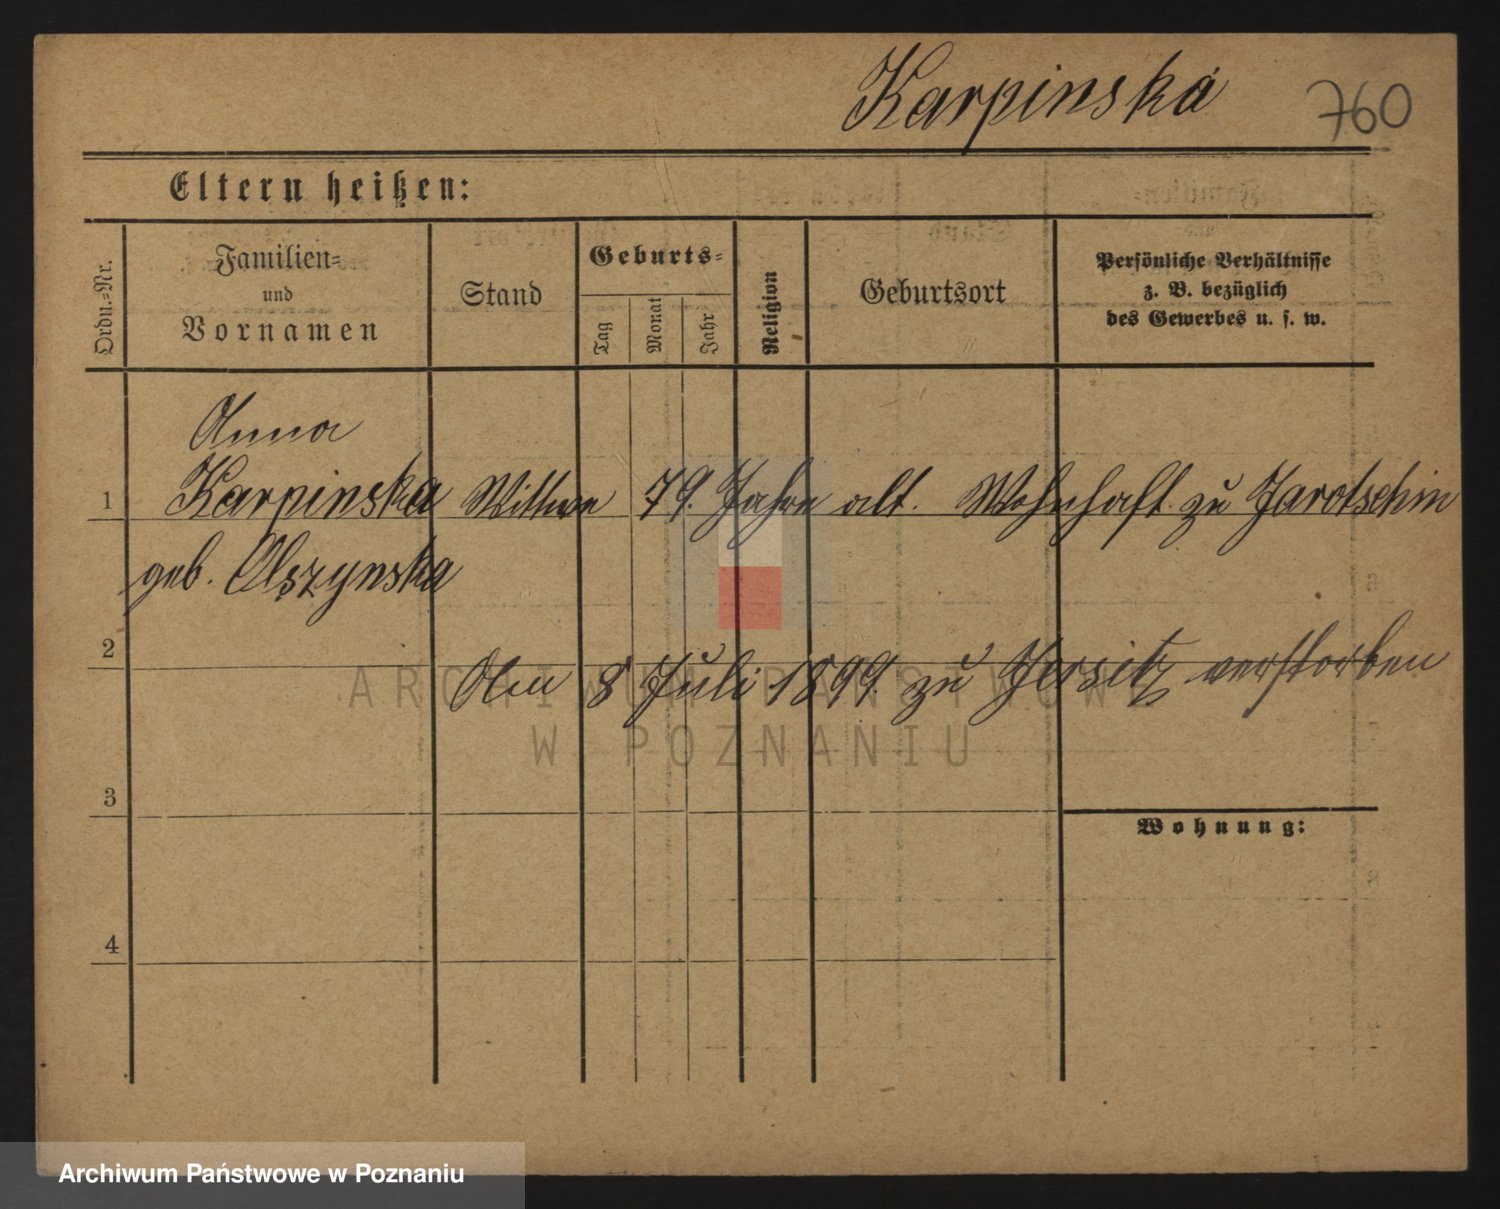 Karpinska 760
Eltern heißen:
Ordn.=Nr.
Familien=
und
Vornamen
Stand
Geburts=
Tag
Monat
Jahr
Religion
Geburtsort
Persönliche Verhältnisse
z. B. bezüglich
des Gewerbes u. s. w.
Anna
1 Karpinska Wittwe 79. Jahre alt. Wohnhaft zu Jarotschin
geb. Olszynska
2
Am 8 Juli 1899. zu Jersitz verstorben
3
Wohnung:
4
ARCHIWUM PAŃSTWOWE
W POZNANIU
Archiwum Państwowe w Poznaniu